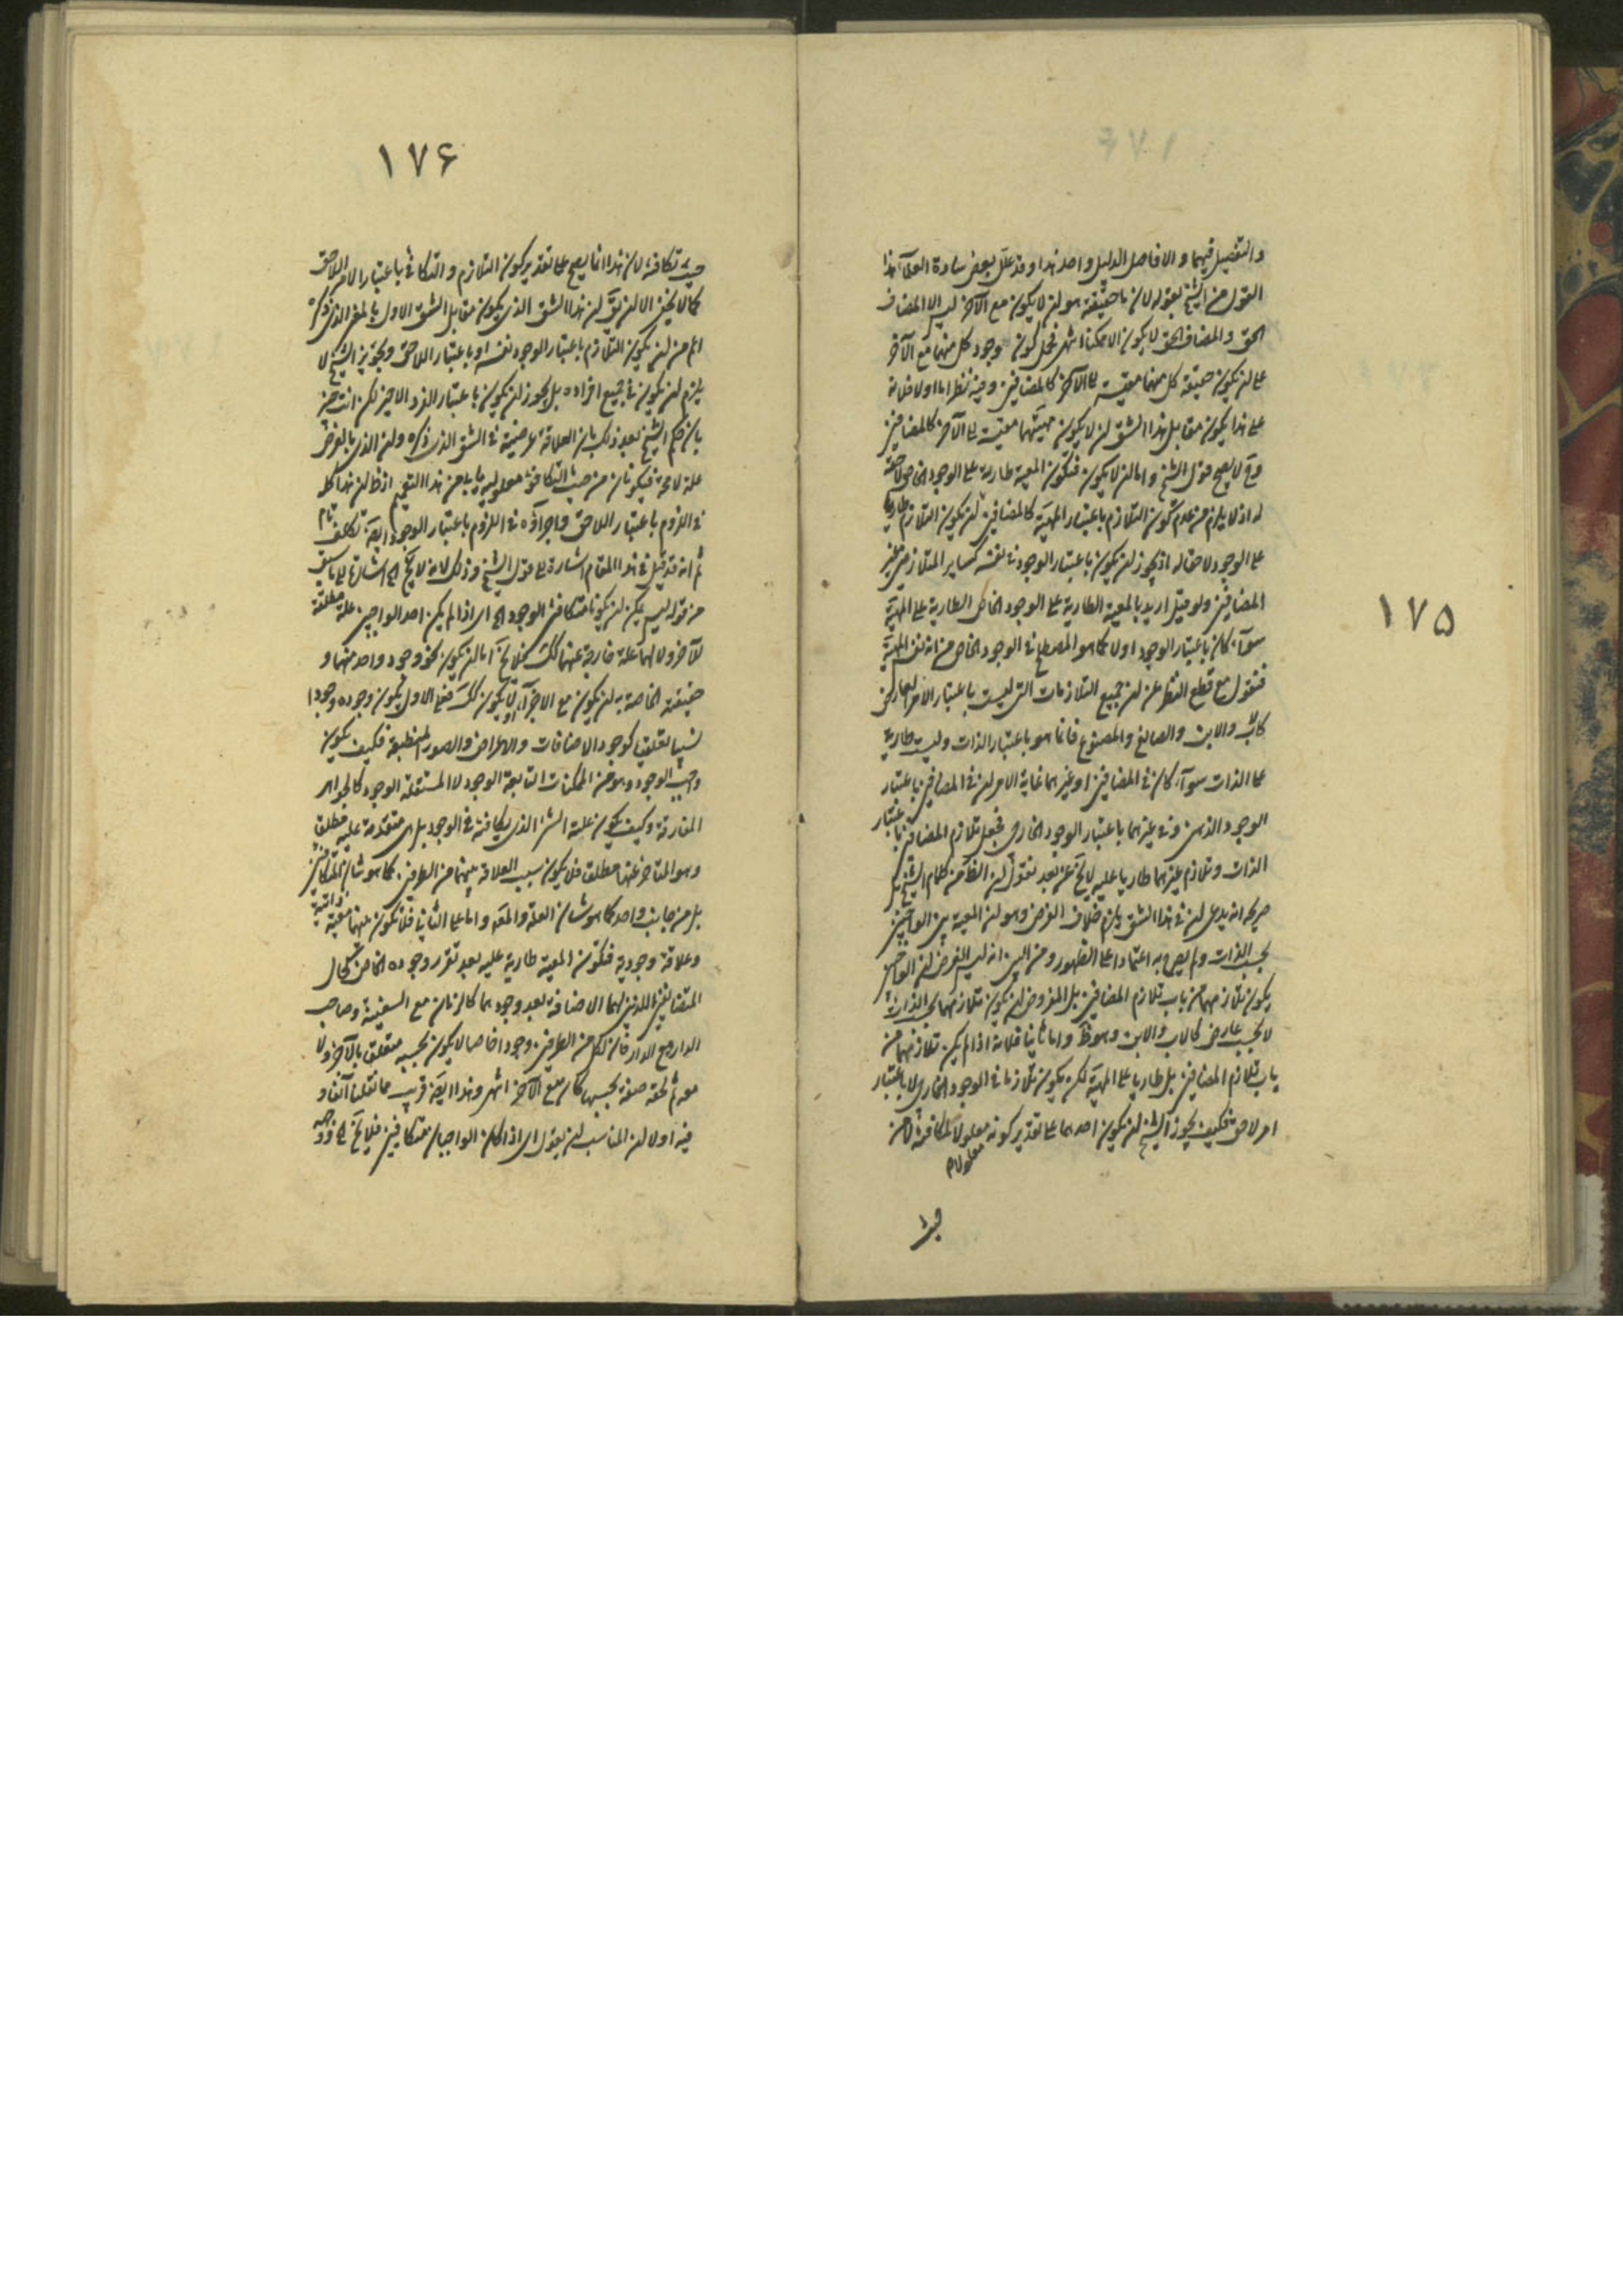 ۱۷۵
والتفصيل فيهما والا فاصل الدليل واحد هذا وقد علل بعض سادة العلماء هذا
القول من الشيخ بقوله لان ما حقيقته هو ان لا يكون مع الآخر ليس الا المضاف
الحق والمضاف الحق لا يكون الا ممكنا انتهى فحمل كون وجود كل منهما مع الآخر
على ان يكون حقيقة كل منهما مقيسة الى الآخر كالمضافين وفيه نظر اما اولا فلانه
على هذا يكون مقابل هذا الشق ان لا يكون مهيتهما مقيسة الى الآخر كالمضافين
وح لا يصح قول الشيخ واما ان لا يكون فتكون المعية طارية على الوجود الخاص لاحقة
له اذ لا يلزم من عدم كون التلازم باعتبار المهية كالمضافين ان يكون التلازم طاريا
على الوجود لاحقا له اذ يجوز ان يكون باعتبار الوجود في نفسه كساير المتلازمين غير
المضافين ولو قيل اريد بالمعية الطارية على الوجود الخاص الطارية على المهية
سوآء كان باعتبار الوجود اولا كما هو المصطلح في الوجود الخاص من انه نفس المهية
فنقول مع قطع النظر عن ان جميع التلازمات التي ليست باعتبار الامر الخارجى
كالاب والابن والصانع والمصنوع فانما هو باعتبار الذات وليست طارية
على الذات سوآء كان في المضافين او غيرهما غاية الامر ان في المضافين باعتبار
الوجود الذهنى وفي غيرهما باعتبار الوجود الخارجى فجعل تلازم المضافين باعتبار
الذات وتلازم غيرهما طاريا عليه لا يخ عن بعد نقول ان الظ من كلام الشيخ بل
صريحه انه يدعى ان في هذا الشق يلزم خلاف الفرض وهو ان المعية بين الواجبين
بحسب الذات ولم يصرح به اعتمادا على الظهور ومن البين انه ليس الفرض ان الواجبين
يكون تلازمهما من باب تلازم المضافين بل المفروض ان يكون تلازمهما بحسب الذات
لا بحسب عارض كالاب والابن وهو ظ واما ثانيا فلانه اذا لم يكن تلازمهما من
باب تلازم المضافين بل طاريا على المهية لكن يكون تلازما في الوجود الخارجى لا باعتبار
امر لاحق فكيف يجوز الشيخ ان يكون احدهما على تقدير كونه معلولا لمكافئه لا من
معلولا م
حيث
۱۷۶
حيث تكافئه لان هذا انما يصح على تقدير كون التلازم والتكافئ باعتبار الامر اللاحق
كما لا يخفى الا ان يق ان هذا الشق الذى يكون مقابل الشق الاول بالمعنى الذى ذكره
اعم من ان يكون التلازم باعتبار الوجود نفسه او باعتبار اللاحق وتجويز الشيخ لا
يلزم ان يكون في جميع افراده بل يجوز ان يكون باعتبار الفرد الاخير لكن انت خبير
بان حكم الشيخ بعد ذلك بان العلاقة عرضية في الشق الذى ذكره وان الذى بالعرض
علة لامحة فيكونان من حيث التكافؤ معلولين يابى من هذا التعميم اذ ظ ان هذا كله
في اللزوم باعتبار اللاحق واجراؤه في اللزوم باعتبار الوجود ايضا تكلف تام
ثم انه قد قيل في هذا المقام اشارة الى قول الشيخ وذلك لانه لا يخ الى اشارة الى ما سبق
من قوله ليس يمكن ان يكونا متكافئى الوجود اى اذا لم يكن احد الواجبين علة مطلقة
للآخر ولا لهما علة خارجة عنهما كك فلا يخ اما ان يكون نحو وجود واحد منهما و
حقيقته الخاصة به ان يكون مع الاخر او لا يكون كك فعلى الاول يكون وجوده وجودا
نسبيا تعلقيا كوجود الاضافات والاعراض والصور المنطبعة فكيف يكون
واجب الوجود وهو من الممكنات التابعة الوجود لا المستقلة الوجود كالجواهر
المفارقة وكيف يكون علية الشىء الذى يكافئه في الوجود بل هى متقدمة عليه مطلقا
وهو المتاخر عنها مطلقا فلا يكون سبب العلاقة بينهما من الطرفين كما هو شان المتكافئين
بل من جانب واحد كما هو شان العلة والمعلول واما على الثانى فلا تكون بينهما معية ذاتية
وعلاقة وجودية فتكون المعية طارية عليه بعد تقرر وجوده الخاص كحال
المتضايفين اللذين لهما الاضافة بعد وجودهما كالربان مع السفينة وصاحب
الدار مع الدار فان لكل من الطرفين وجودا خاصا لا يكون بحسبه متعلقا بالآخر ولا
معه ثم لحقه صفة بحسبها كان مع الآخر انتهى وهذا ايضا قريب مما نقلنا آنفا و
فيه اولا ان المناسب ان يقول اى اذا كان الواجبان متكافئين فلا يخ الى وجه